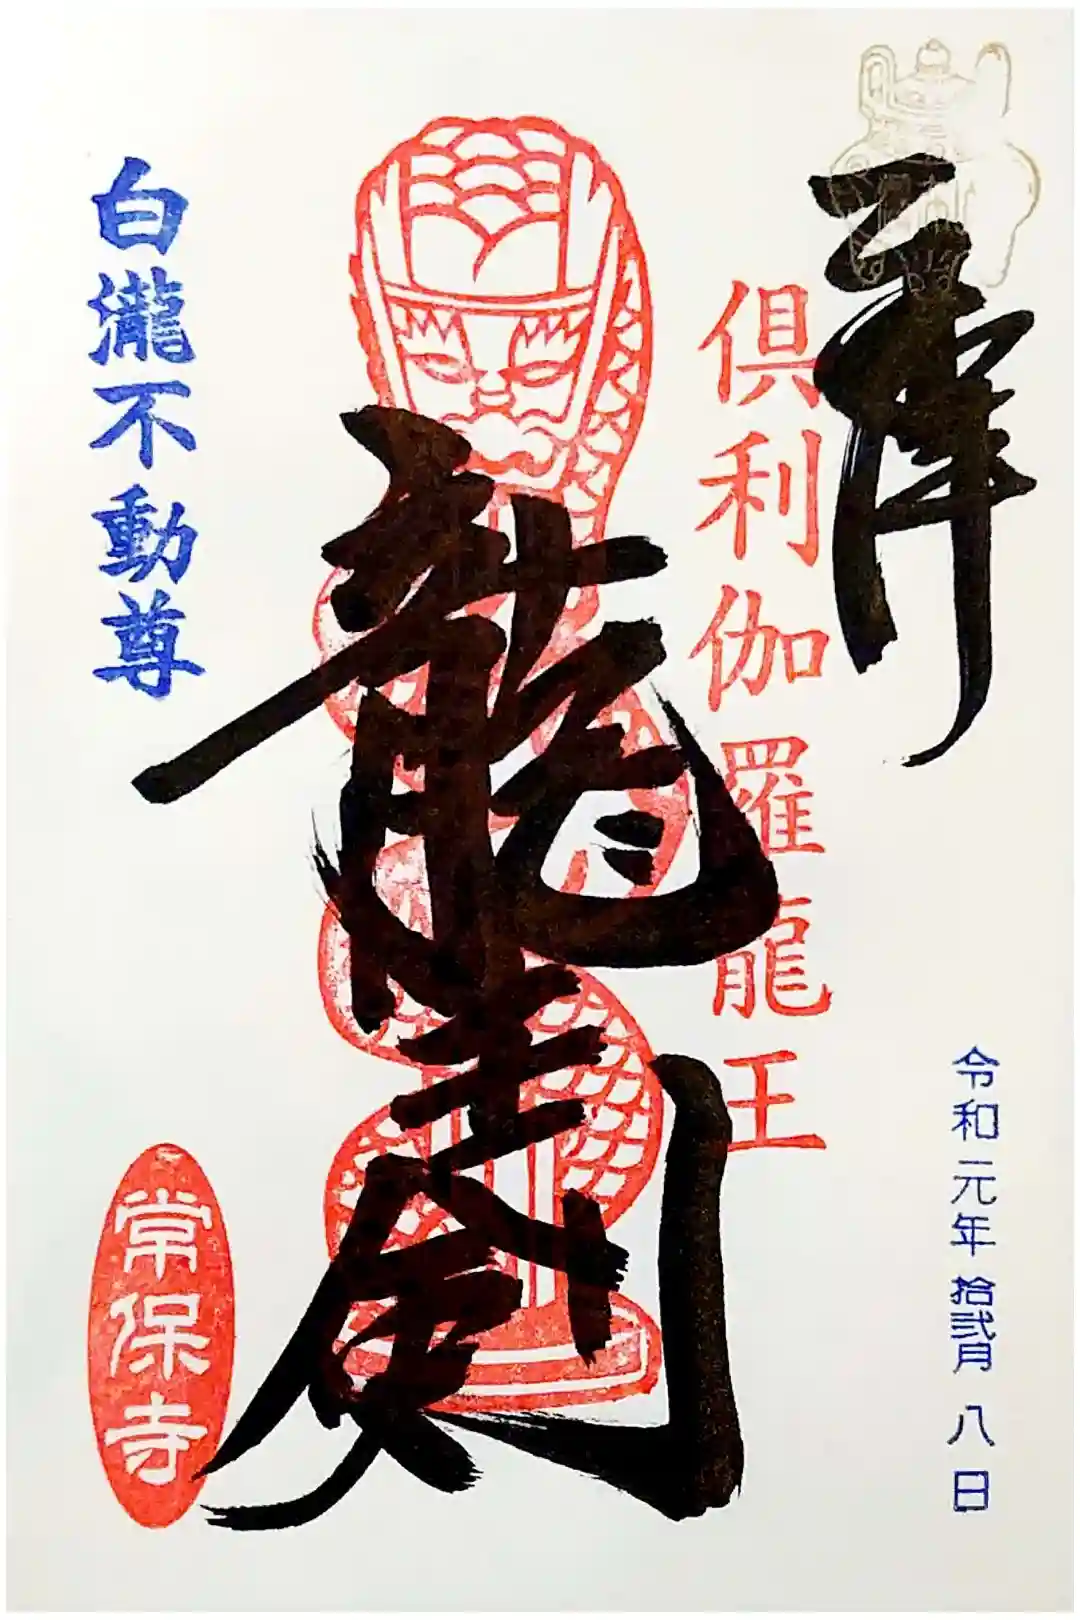 奉拝
令和元年拾弐月八日
倶利伽羅龍王
龍劍
白瀧不動尊
常保寺